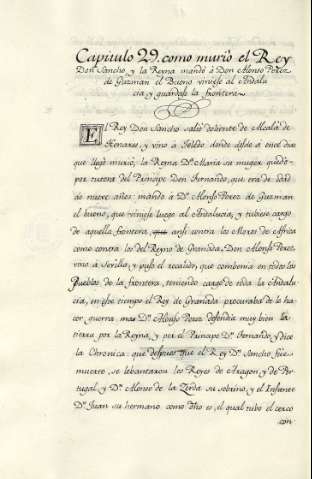 Capitulo 29. como murio el Rey
Don Sancho, y la Reyna mandó á Don Alonso Perez
de Guzman el Bueno viniese al Andalu
cia, y guardase la frontera
El Rey Don Sancho salio doliente de Alcalá de
Henares, y vino á Toledo donde
que llegó murió, la Reyna Dª Maria su muger quedó
por tutora del Principe Don Fernando, que era de edad
de nueve años: mandó á Dn Alonso Perez de Guzman
el bueno, que viniese luego al Andalucia, y tubiese cargo
de aquella frontera, ansi contra los Moros de Africa
como contra los del Reyno de Granada, Don Alonso Perez
vino á Sevilla, y puso el recaudo, que combenia en todos los
Pueblos de la frontera, teniendo cargo de toda la Andalu
cia, en este tiempo el Rey de Granada procuraba de ha
cer guerra, mas Dn Alonso Perez defendia muy bien la
tierra por la Reyna, y por el Principe Dn Fernando, y dice
la Chronica: que despues que el Rey Dn Sancho fue
muerto, se lebantaron los Reyes de Aragon, y de Por
tugal, y Dn Alonso de la Zerda su sobrino, y el Infante
Dn Juan su hermano como dho es, el qual tubo el cerco
con